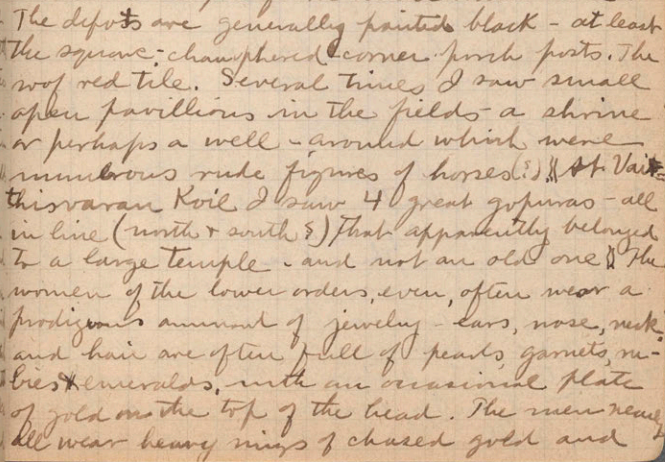 The depots are generally painted black - at least
the square, champhered-corner porch posts. The
roof red tile. Several times I saw small
open pavillions in the fields - a shrine
or perhaps a well - around which were
numbrous rude figures of horses(?) \\ At Vait=
thisvaran Koil I saw 4 great gopuras - all
in line (north & south ?) that apparently belonged
to a large temple - and not an old one \\ The
women of the lower orders, even, often wear a
prodigious amount of jewelry - ears, nose, neck
and hair are often full of pearls, garnets, ru-
bies & emeralds, with an occasional plate
of gold on the top of the head. The men nearly
all wear heavy rings of chased gold and